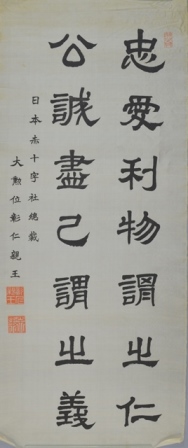 忠愛利物謂之仁
公誠盡己謂之義
日本赤十字社總裁
大勲位彰仁親王